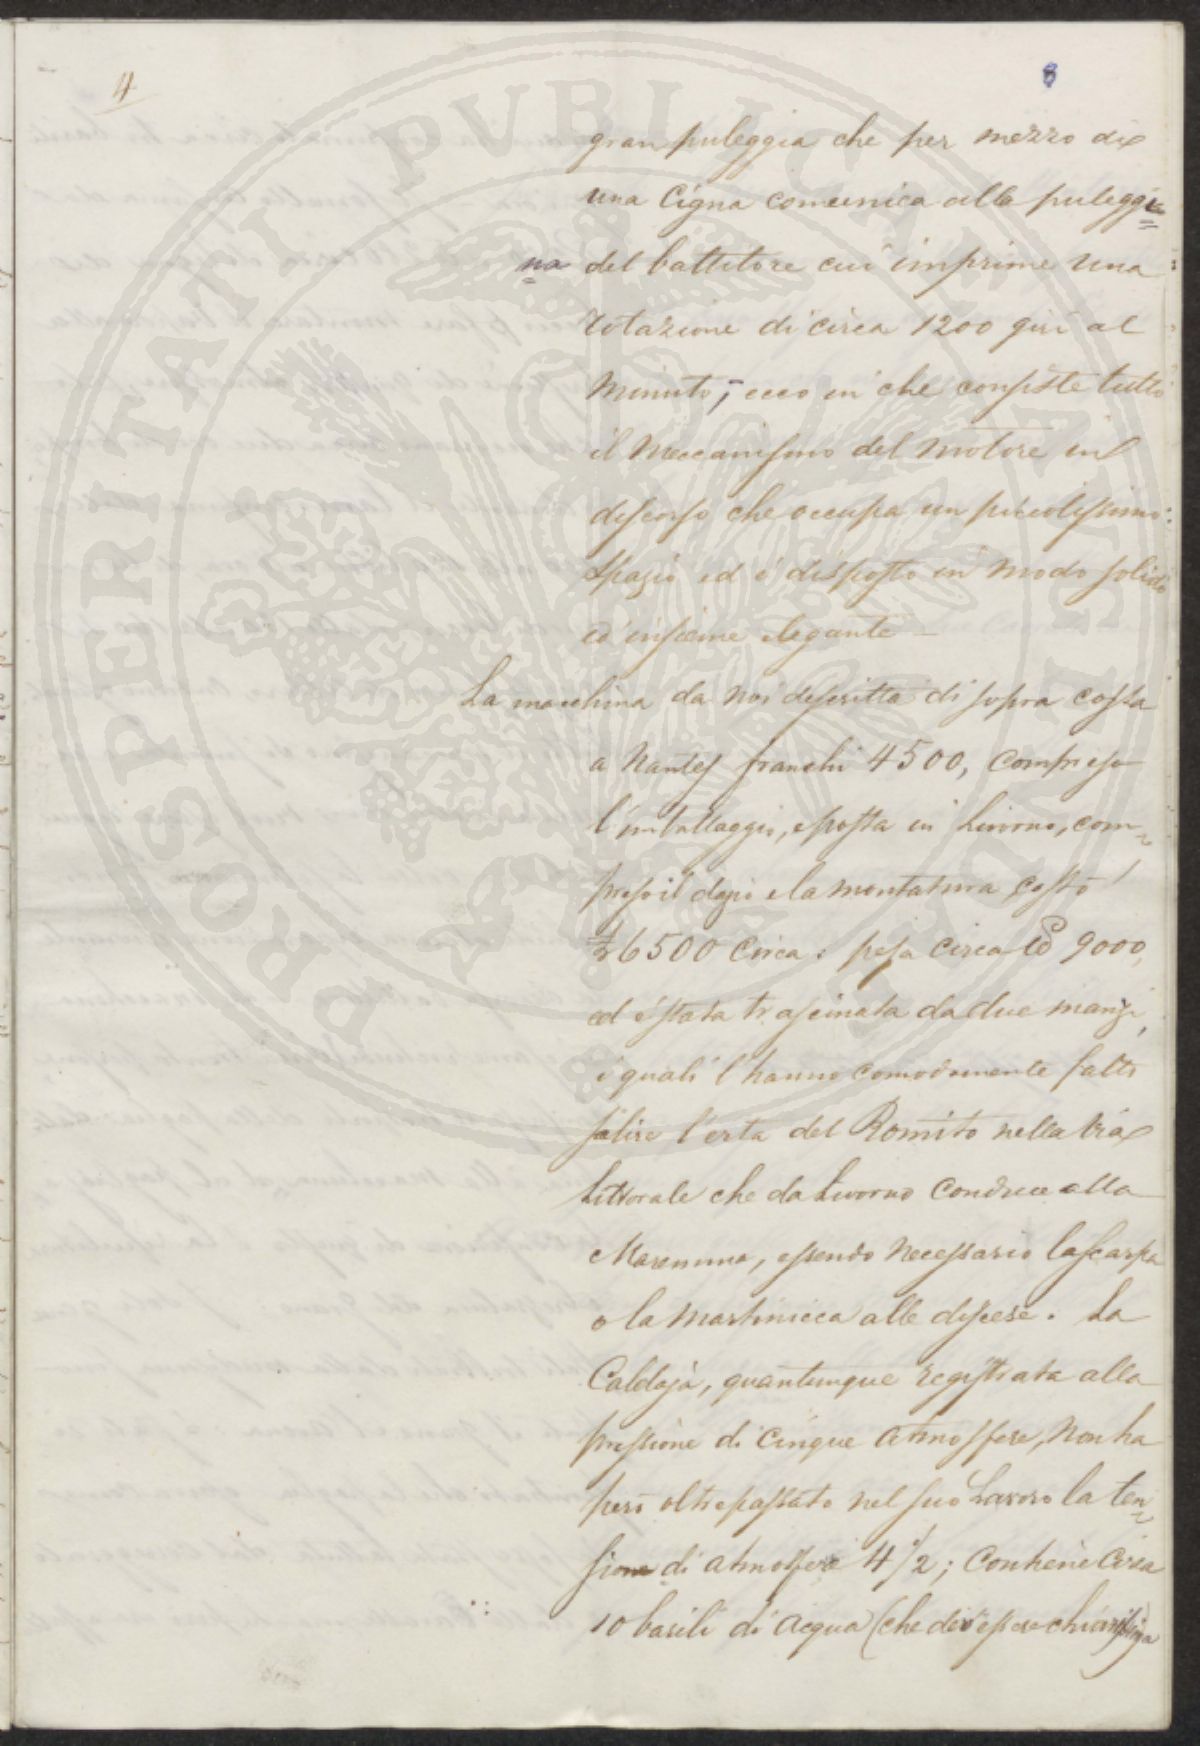 4
8
gran puleggia che per mezzo di
una Cigna comunica alla puleggi
na del battitore cui imprime una
rotazione di circa 1200 giri al
minuto; ecco in che consiste tutto
il meccanismo del motore in
discorso che occupa un piccolissimo
spazio ed è disposto in modo solido
ed insieme elegante —
La macchina da noi descritta di sopra costa
a Nantes franchi 4500, compreso
l'imballaggio, e posta in Livorno, com-
preso il dazio e la montatura costò
£ 6500 circa: pesa circa 9000,
ed è stata trascinata da due manzi,
i quali l'hanno comodamente fatta
salire l'erta del Romito nella via
Littorale che da Livorno conduce alla
Maremma, essendo necessario la scarpa
o la martinicca alle discese. La
Caldaja, quantunque registrata alla
pressione di cinque atmosfere, non ha
però oltrepassato nel suo Lavoro la ten-
sione di atmosfere 4 1/2; contiene circa
10 barili di acqua (che dev'essere chiarissima
PROSPERITATI PUBLICAE AUGENDAE